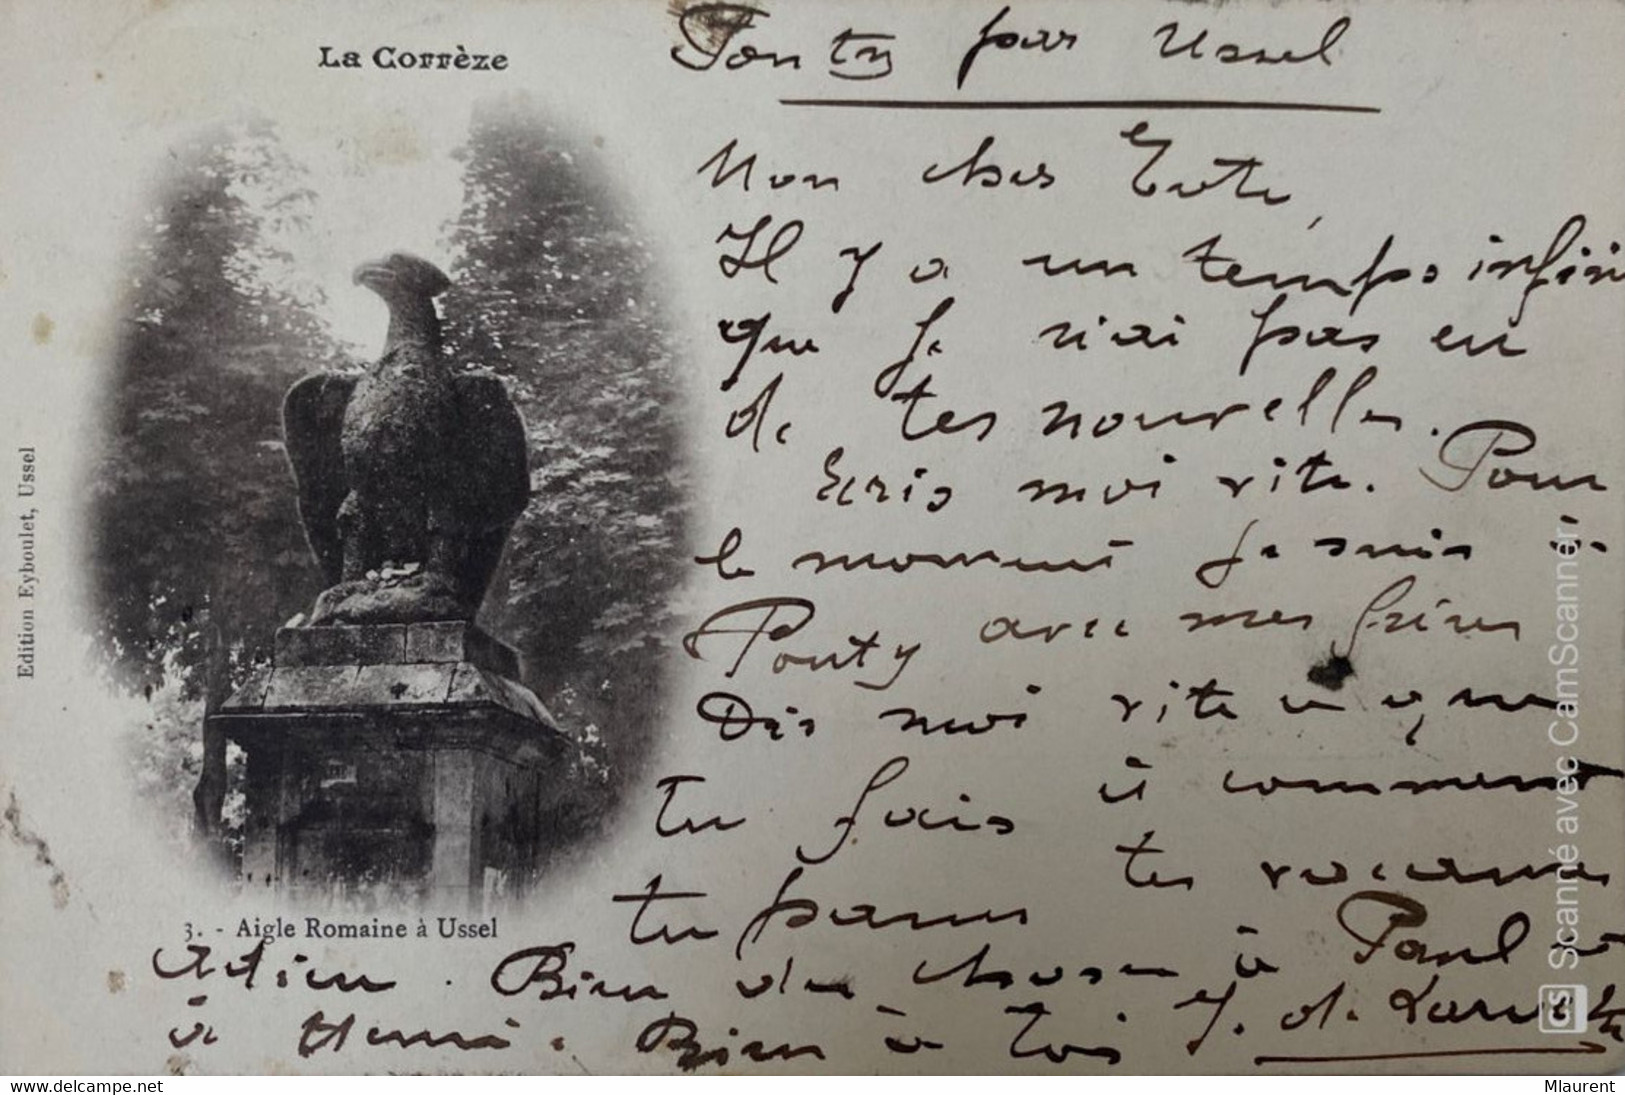 La Corrèze
Ponty par Ussel
Mon cher
Il y a un temps infini
que je n'ai pas eu
de tes nouvelles.
Ecris moi vite. Pour
le moment je suis à
Ponty avec mes frères
Dis moi vite ce que
tu fais et comment
tu passes tes vacances
Adieu. Bien des choses à Paul et
à Henri. Bien à toi J. de
3. - Aigle Romaine à Ussel
Edition Eyboulet, Ussel
Scanné avec CamScanner
CS
www.delcampe.net
Mlaurent